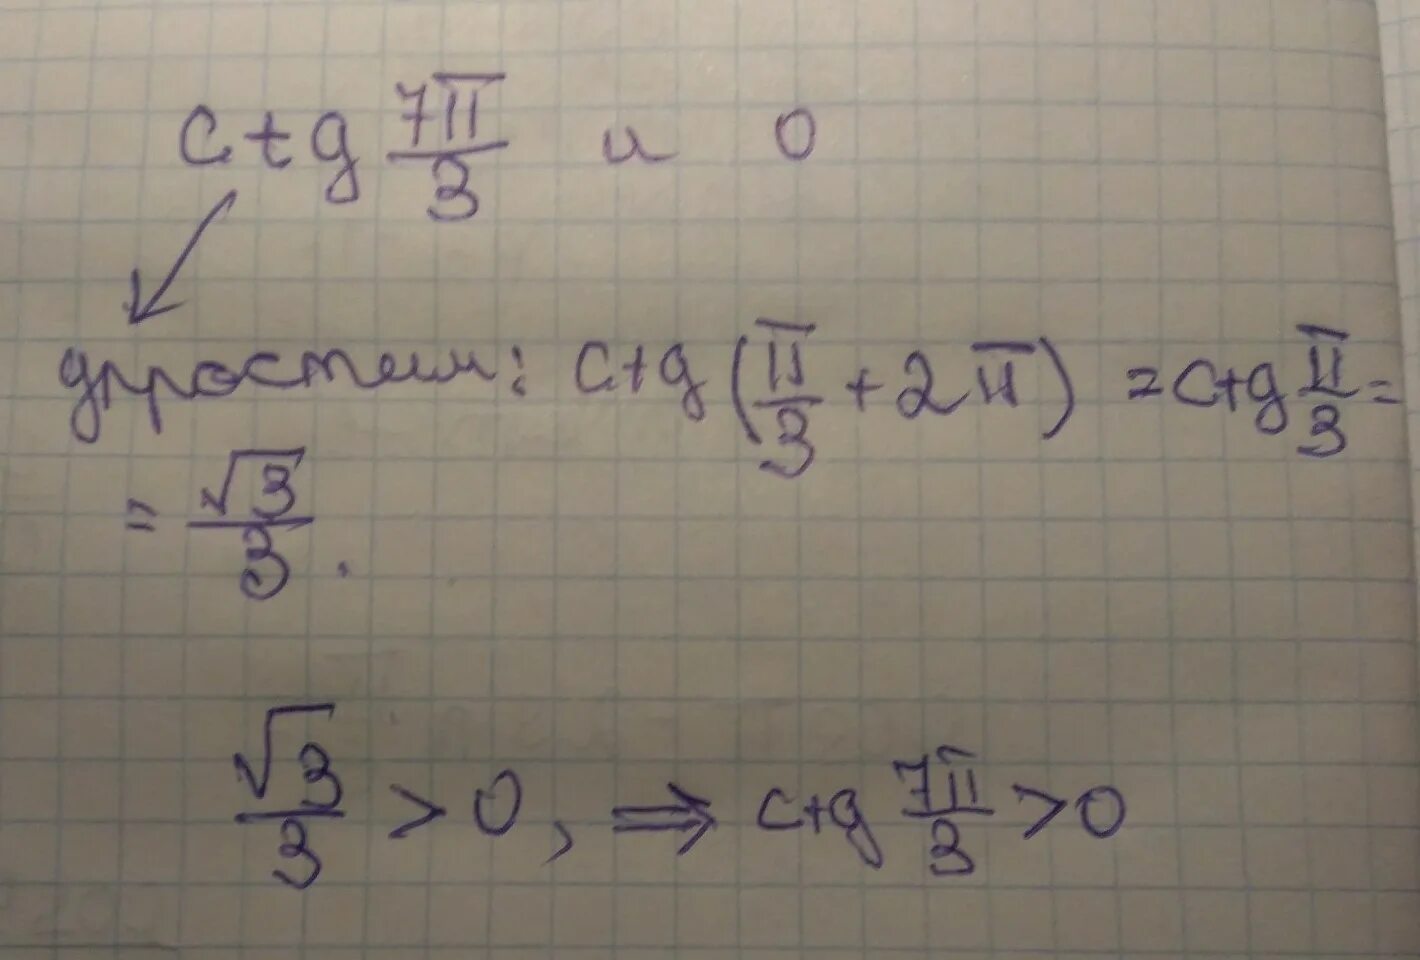 ctg 7π/3 и 0
упростим: ctg(π/3 + 2π) = ctg π/3 =
= √3/3.
√3/3 > 0, ⇒ ctg 7π/3 > 0